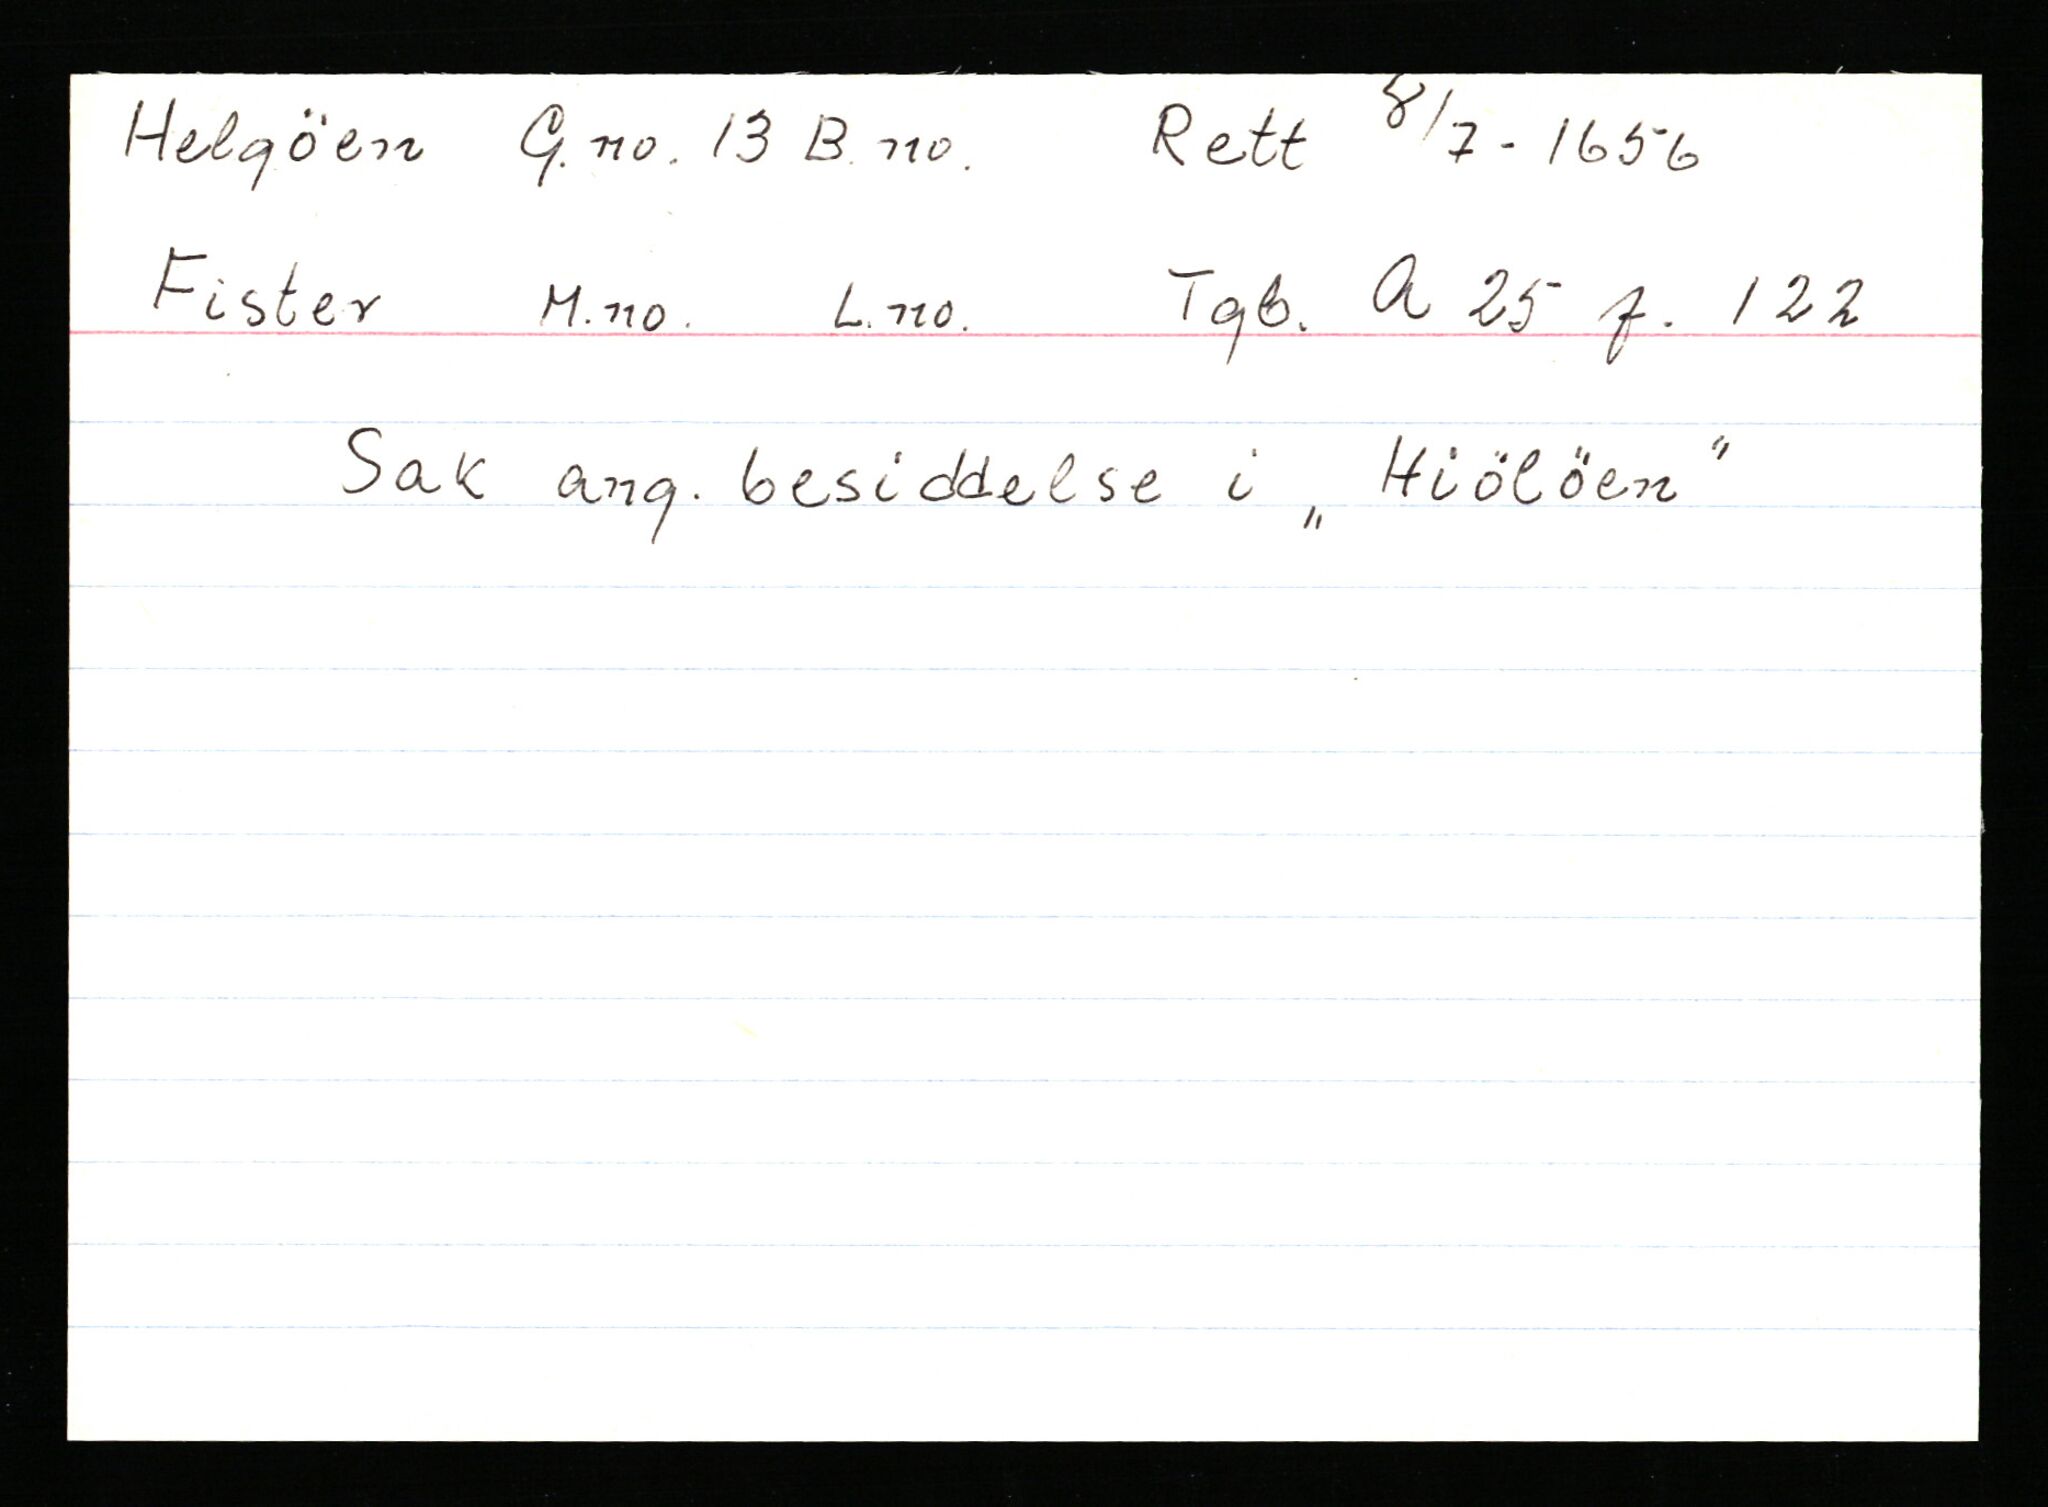 Helgöen G.no. 13 B.no. Rett 8/7-1656
Fister M.no. L.no. Tgb. A 25 f. 122
Sak ang. besiddelse i „Hiölöen"